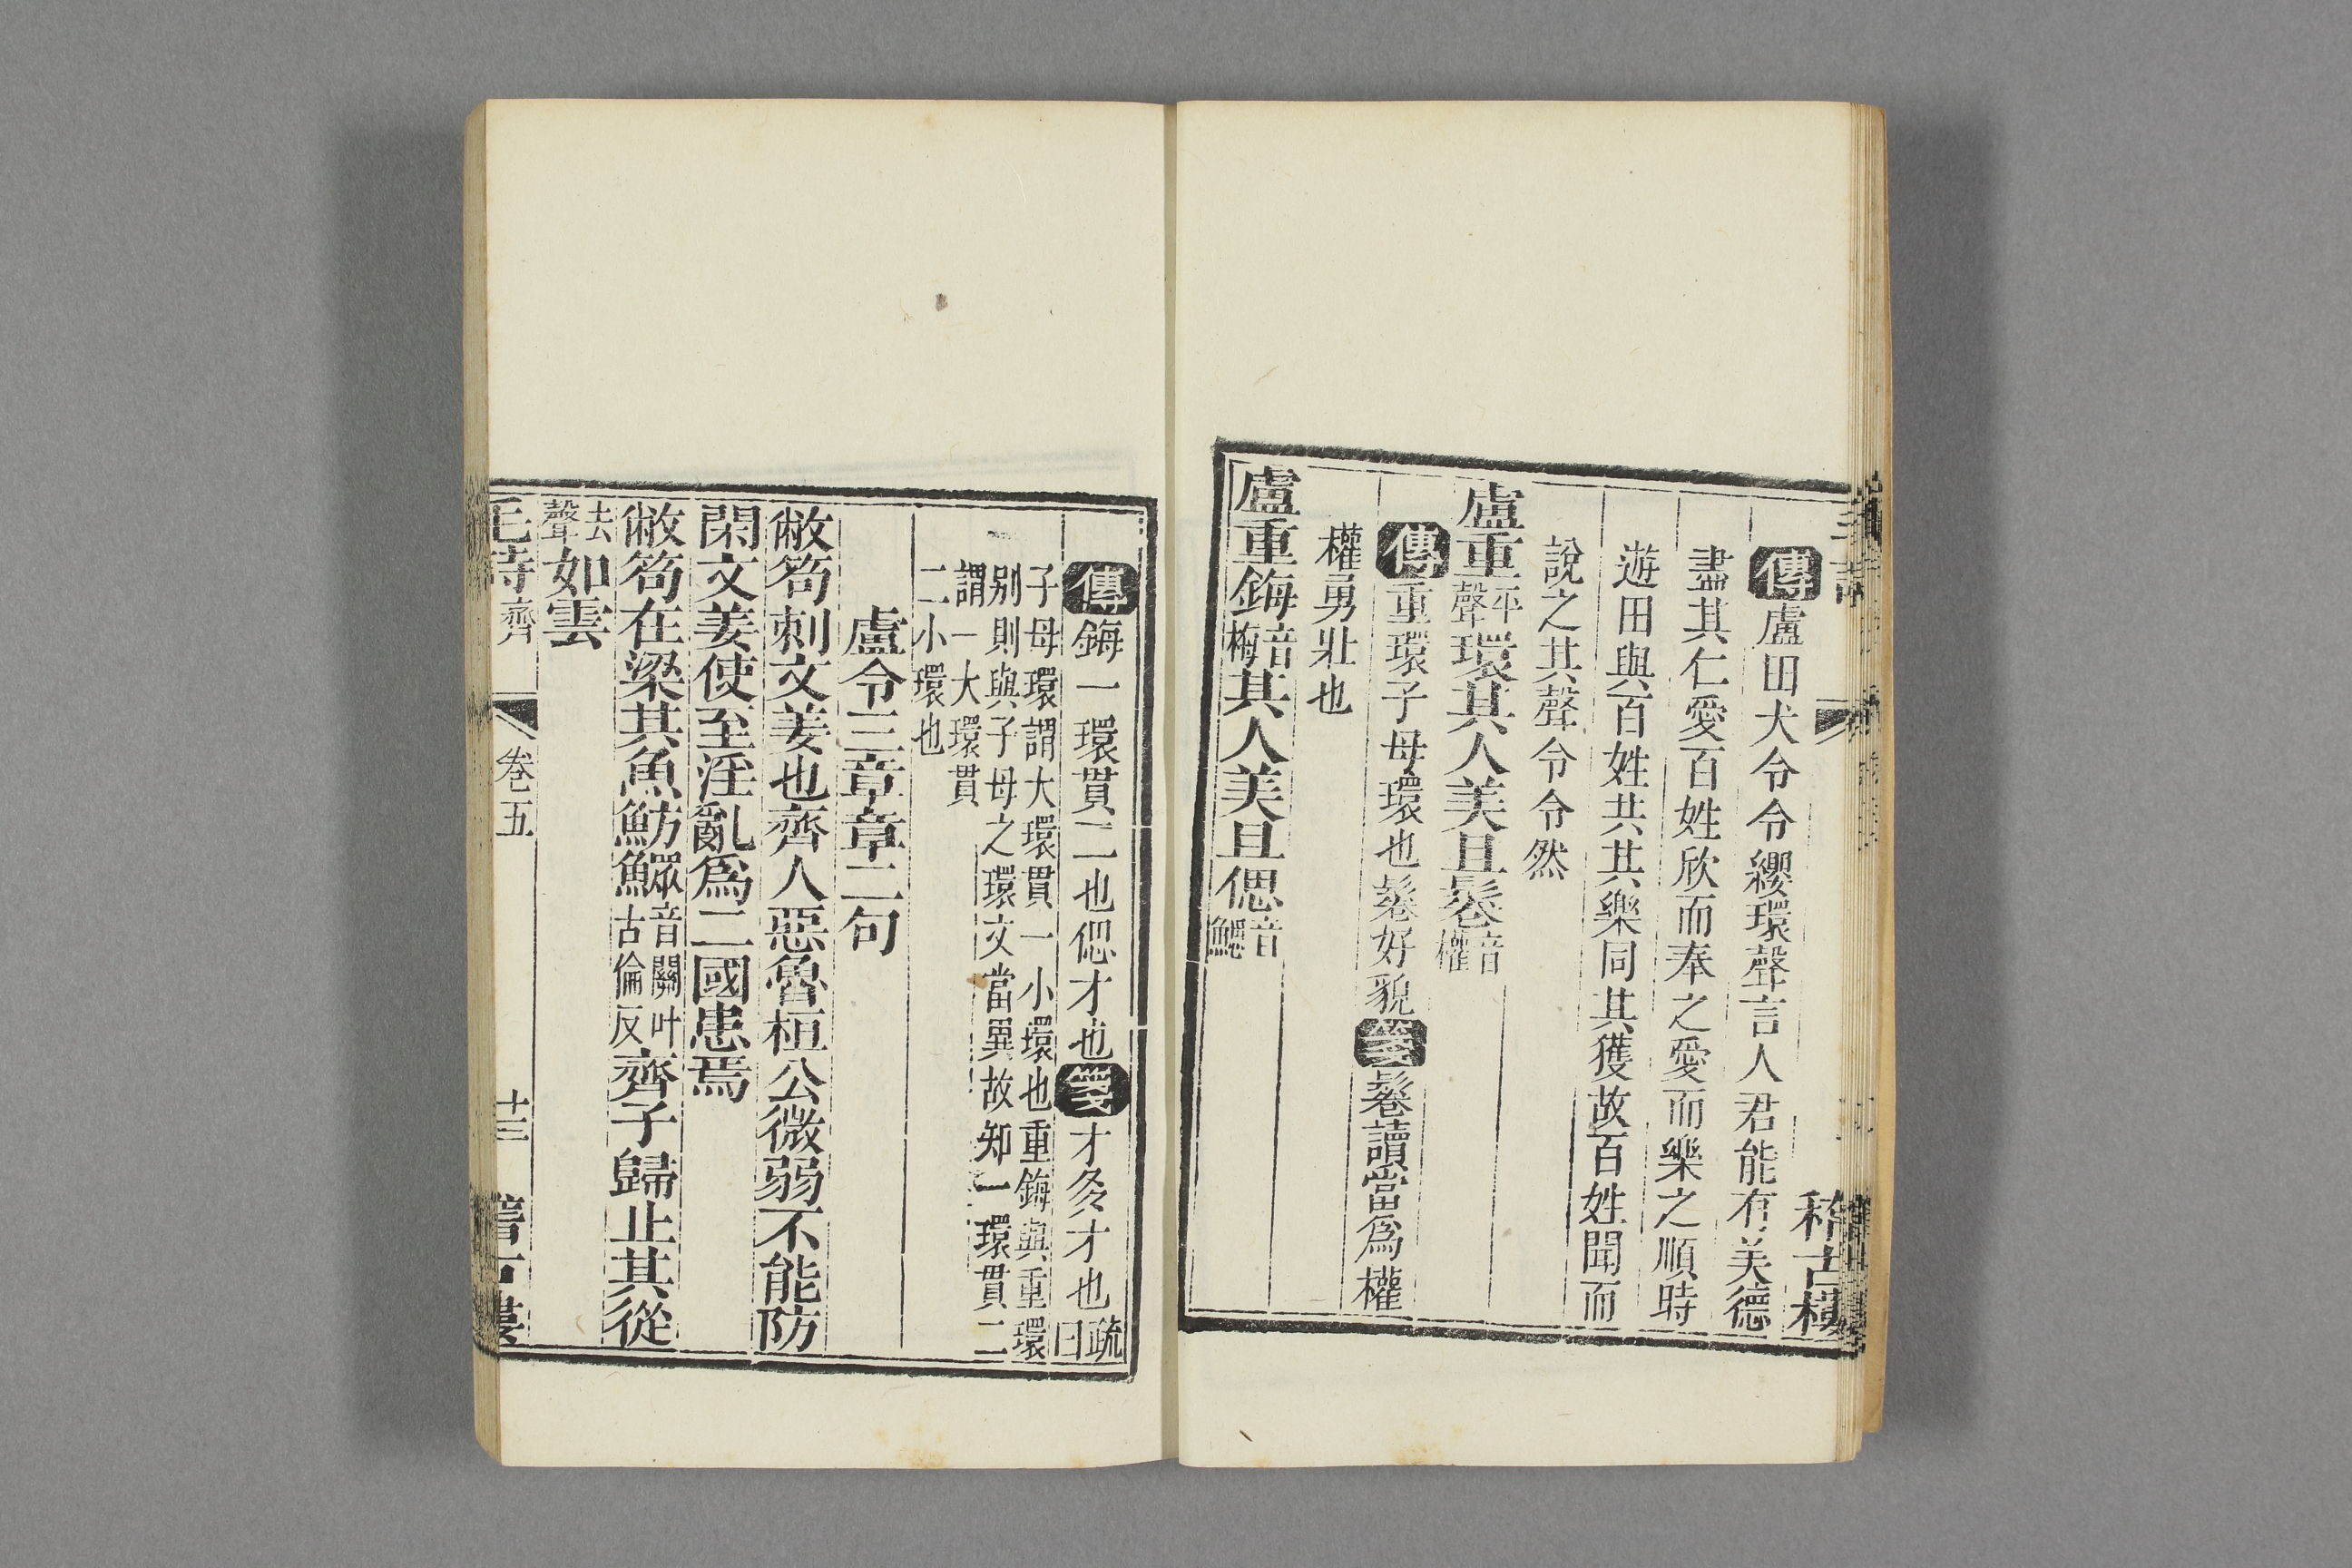 稽古樓
傳盧田犬令令纓環聲言人君能有美德
盡其仁愛百姓欣而奉之愛而樂之順時
遊田與百姓共其樂同其獲故百姓聞而
說之其聲令令然
盧重平聲環其人美且鬈音權
傳重環子母環也鬈好貌箋鬈讀當爲權
權勇壯也
盧重鋂音梅其人美且偲音鰓
傳鋂一環貫二也偲才也箋才多才也疏曰
子母環謂大環貫一小環也重鋂與重環
别則與子母之環文當異故知一環貫二
謂一大環貫
二小環也
盧令三章章二句
敝笱刺文姜也齊人惡魯桓公微弱不能防
閑文姜使至淫亂爲二國患焉
敝笱在梁其魚魴鰥音關叶古倫反齊子歸止其從
去聲如雲
毛詩齊 卷五 十三 稽古樓